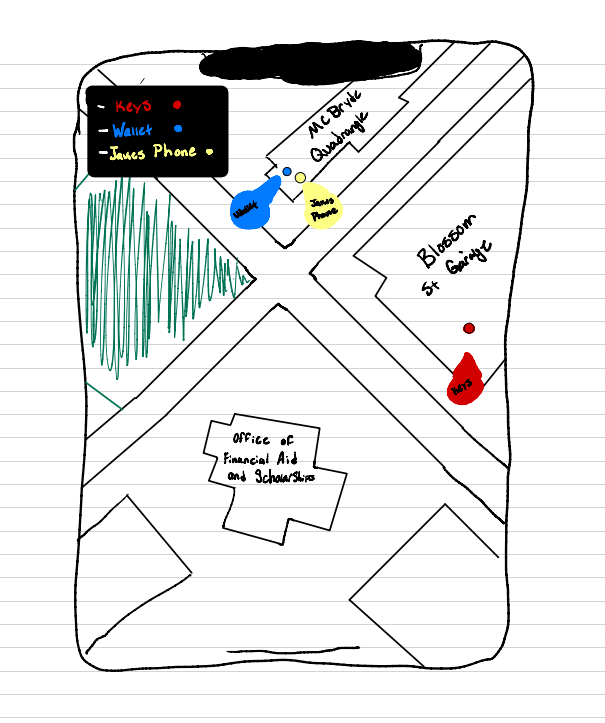 - Keys
- Wallet
- James Phone
Mc Bryde
Quadrangle
Wallet
James
Phone
Blossom
St Garage
Keys
Office of
Financial Aid
and Scholarships